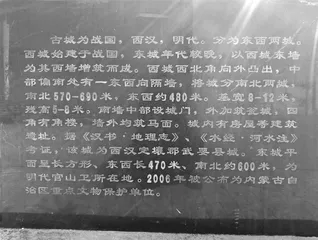 古城为战国，西汉，明代。分为东西两城。
西城始建于战国，东城年代较晚，以西城东墙
为其西墙增筑而成。西城西北角向外凸出，中
部偏南处有一东西向隔墙，将城分南北两城，
南北570-690米，东西约480米。基宽8-12米，
残高5-8米。南墙中部设城门，外加筑瓮城，四
角有角楼，墙外均筑马面。城内有房屋等建筑
遗址。据《汉书·地理志》、《水经·河水注》
考证，该城为西汉定襄郡武要县城。东城平
面呈长方形，东西长470米、南北约600米，为
明代官山卫所在地。2006年被公布为内蒙古自
治区重点文物保护单位。